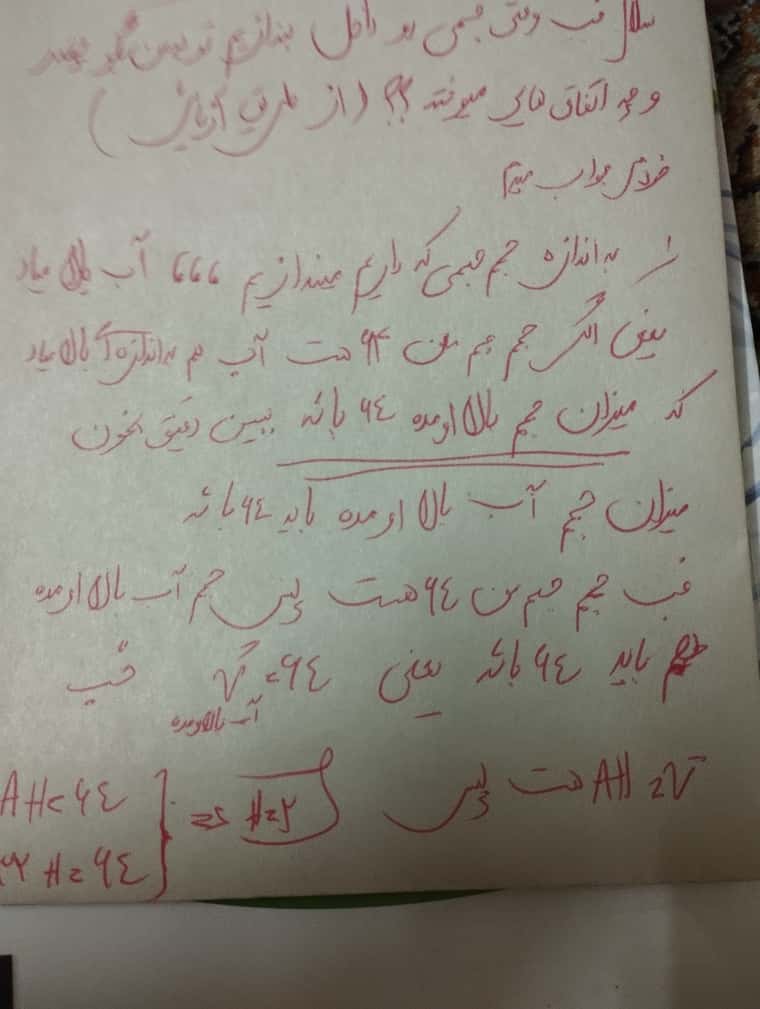 سلام خب وقتی جسمی رو داخل بندازیم تو
و چه اتفاق هایی میوفته ؟؟ (از طریق آزمایش)
خودم جواب میدم
به اندازه حجم جسمی که داریم میندازیم ،،، آب بالا میاد
یعنی اگر حجم جسم من ۶۴ هست آب هم به اندازه بالا میاد
که میزان حجم بالا اومده ۶۴ باشه ببین دقیق بخون
میزان حجم آب بالا اومده باید ۶۴ باشه
خب حجم جسم من ۶۴ هست پس حجم آب بالا اومده
هم باید ۶۴ باشه یعنی V=۶۴ خب
آب بالا اومده
V=AH هست پس H=۲ <=
AH=۶۴
۳۲ H=۶۴